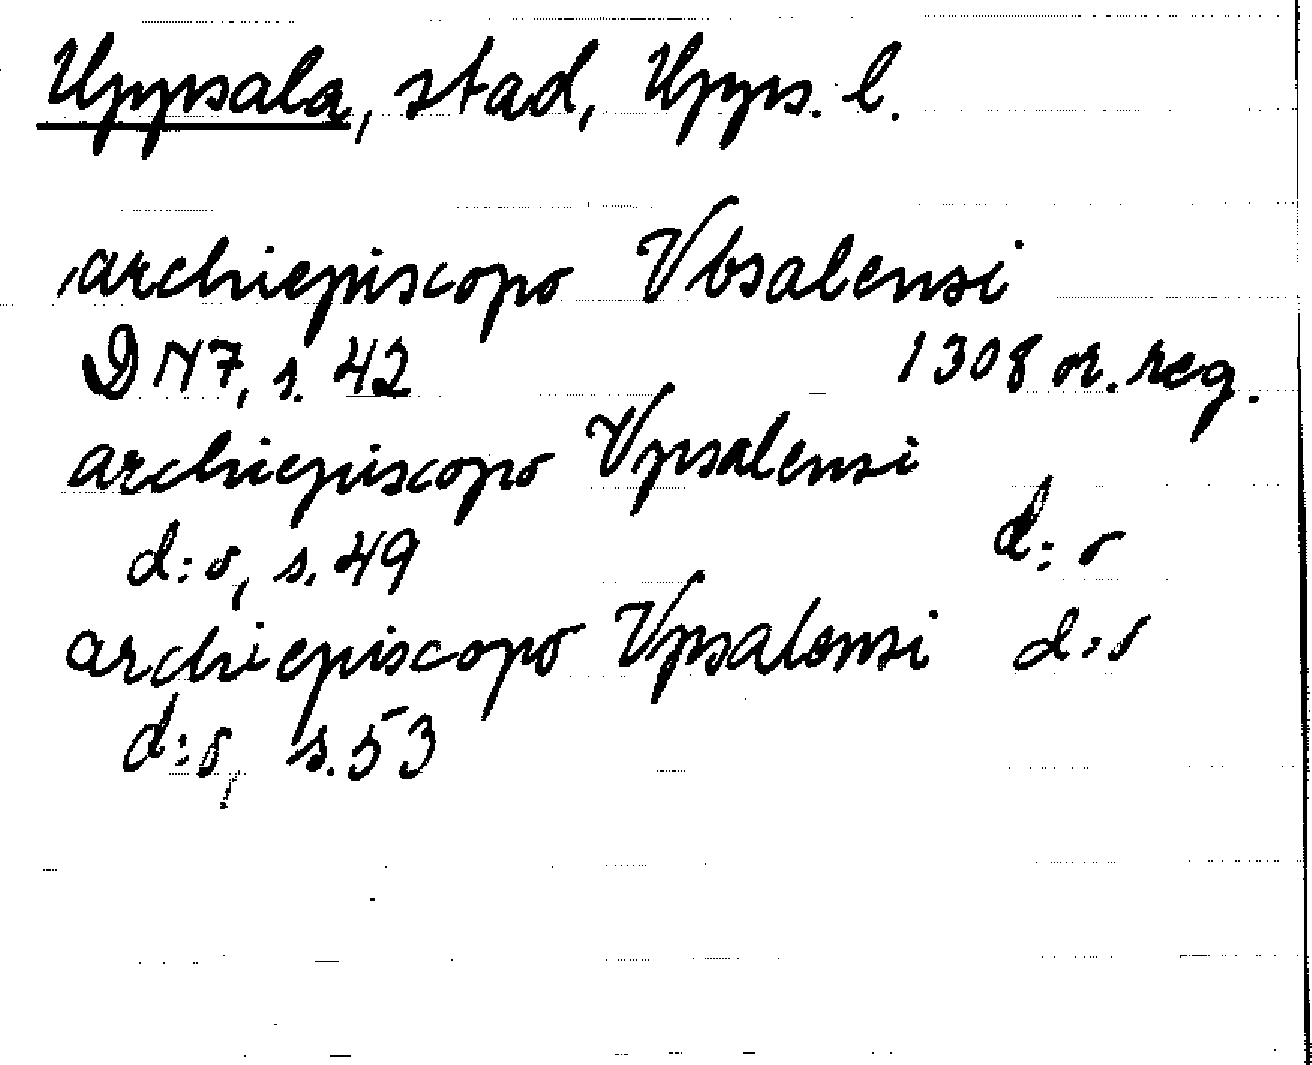 Uppsala, stad, Upps. l.
archiepiscopo Vbsalensi
DN7, s. 42 1308 or. reg.
archiepiscopo Vpsalensi
d:o, s. 49 d:o
archiepiscopo Vpsalensi d:o
d:o, s. 53